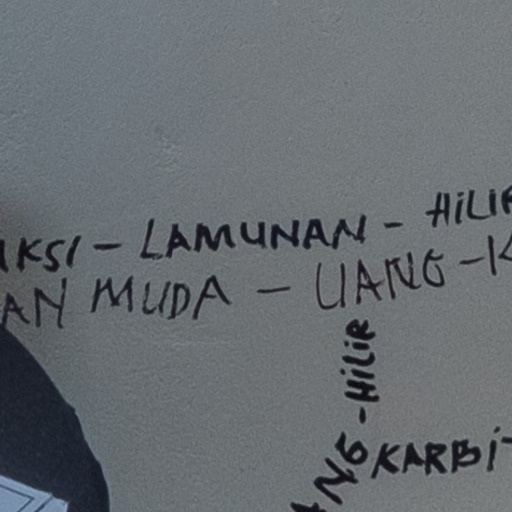 KSI - LAMUNAN - HILIR
AN MUDA - UANG - K
NG - HILIR
KARBIT